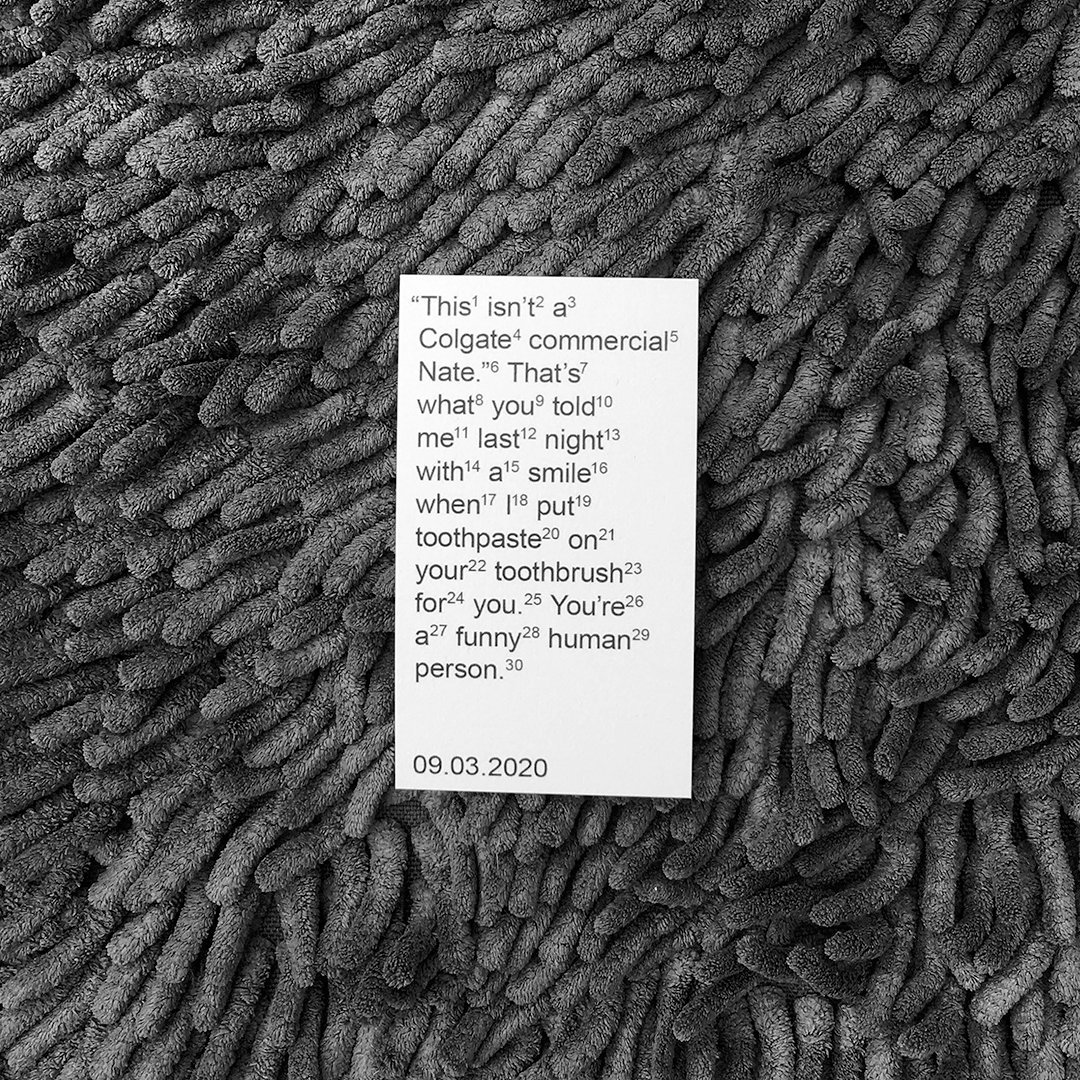 “This¹ isn’t² a³
Colgate⁴ commercial⁵
Nate.”⁶ That’s⁷
what⁸ you⁹ told¹⁰
me¹¹ last¹² night¹³
with¹⁴ a¹⁵ smile¹⁶
when¹⁷ I¹⁸ put¹⁹
toothpaste²⁰ on²¹
your²² toothbrush²³
for²⁴ you.²⁵ You’re²⁶
a²⁷ funny²⁸ human²⁹
person.³⁰
09.03.2020